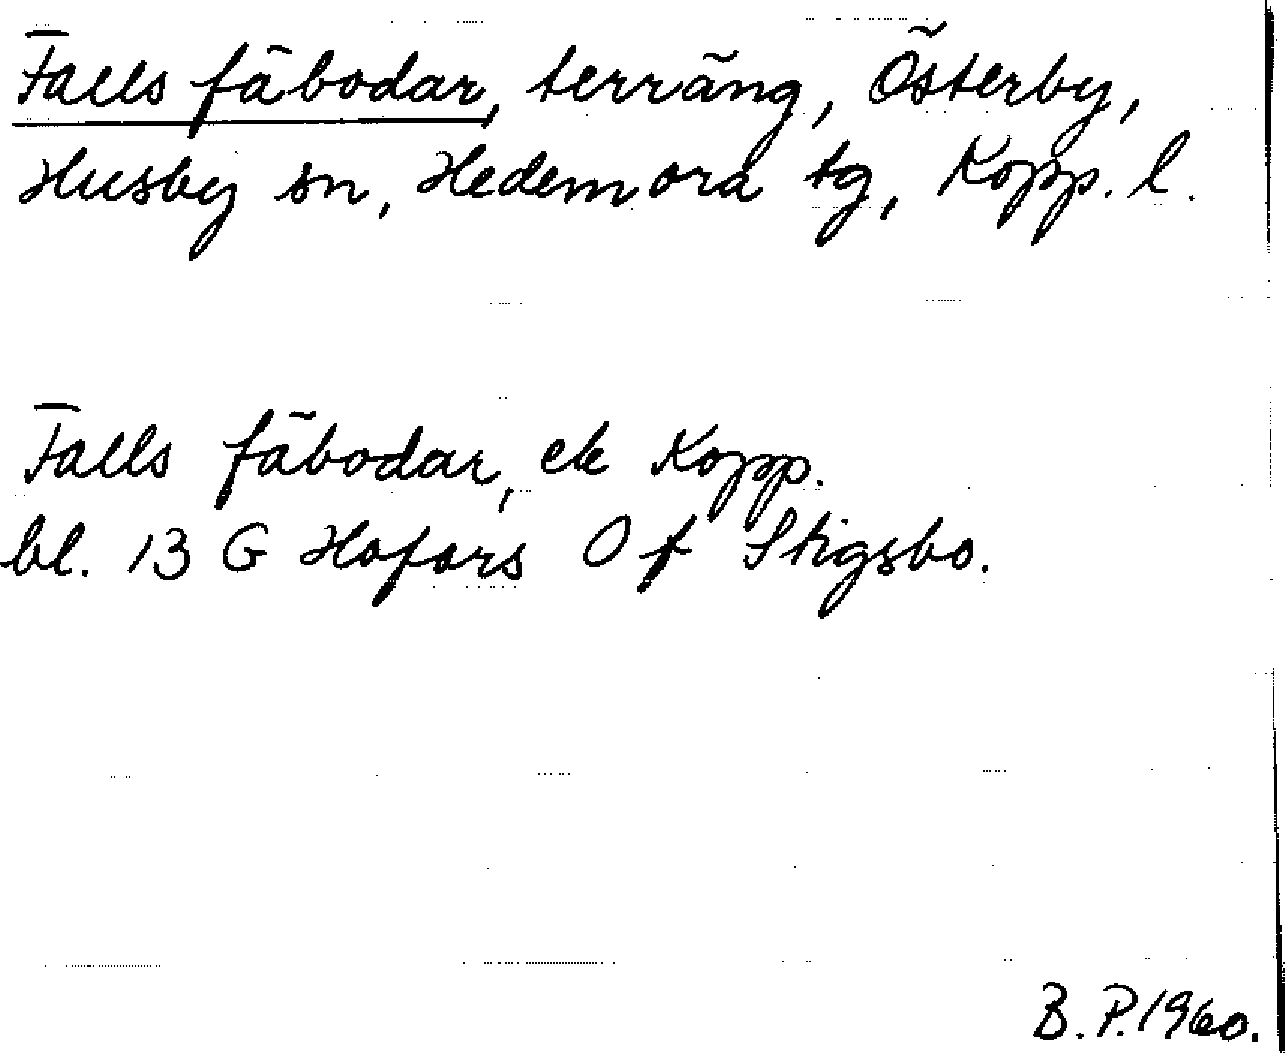 Falls fäbodar, terräng, Österby,
Husby sn, Hedemora tg, Kopp. l.
Falls fäbodar, ek Kopp.
bl. 13 G Hofors 0 f Stigsbo.
B. P. 1960.